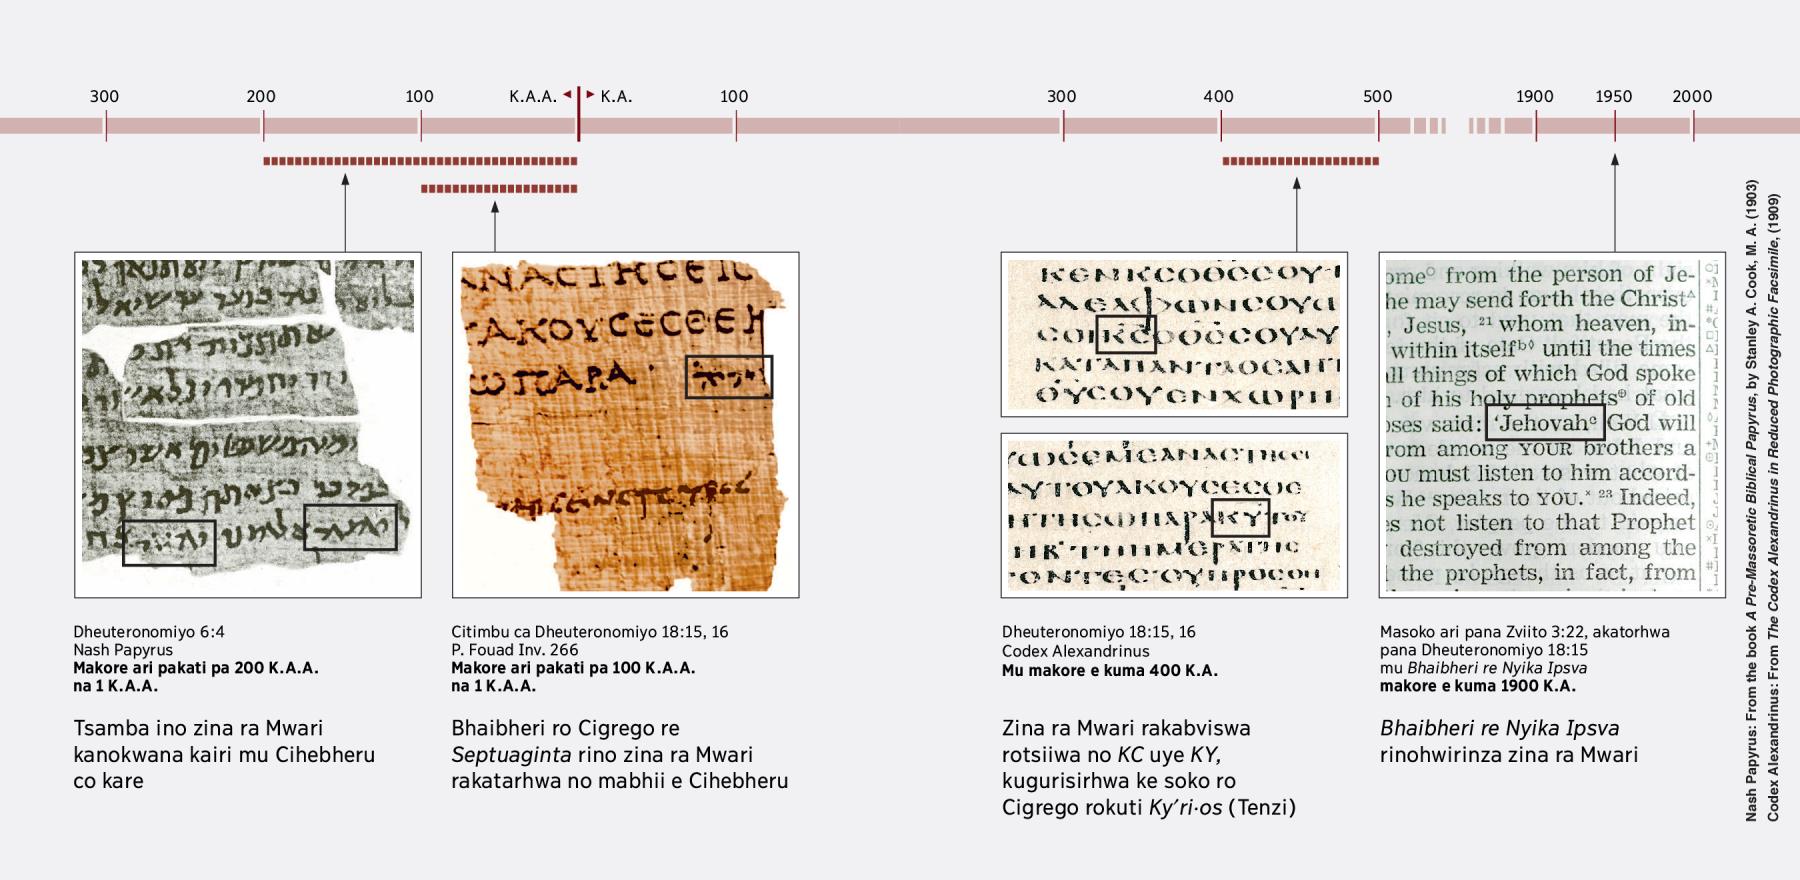 300 200 100 K.A.A. K.A. 100 300 400 500 1900 1950 2000
ΝΑϹΤΗϹΕΙϹ
ΑΚΟΥϹΕϹΘΕ
ΩΠΑΡΑ יהוה
ΚΑΤΑΠΑΝΤΑΟϹΑΗΤ
ome° from the person of Je-
he may send forth the Christ
Jesus, 21 whom heaven, in-
within itself until the times
all things of which God spoke
of his holy prophets of old
oses said: ‘Jehovah God will
rom among YOUR brothers a
ou must listen to him accord-
s he speaks to YOU. 23 Indeed,
es not listen to that Prophet
destroyed from among the
the prophets, in fact, from
Dheuteronomiyo 6:4
Nash Papyrus
Makore ari pakati pa 200 K.A.A.
na 1 K.A.A.
Tsamba ino zina ra Mwari
kanokwana kairi mu Cihebheru
co kare
Citimbu ca Dheuteronomiyo 18:15, 16
P. Fouad Inv. 266
Makore ari pakati pa 100 K.A.A.
na 1 K.A.A.
Bhaibheri ro Cigrego re
Septuaginta rino zina ra Mwari
rakatarhwa no mabhii e Cihebheru
Dheuteronomiyo 18:15, 16
Codex Alexandrinus
Mu makore e kuma 400 K.A.
Zina ra Mwari rakabviswa
rotsiiwa no KC uye KY,
kugurisirhwa ke soko ro
Cigrego rokuti Ky′ri·os (Tenzi)
Masoko ari pana Zviito 3:22, akatorhwa
pana Dheuteronomiyo 18:15
mu Bhaibheri re Nyika Ipsva
makore e kuma 1900 K.A.
Bhaibheri re Nyika Ipsva
rinohwirinza zina ra Mwari
Nash Papyrus: From the book A Pre-Massoretic Biblical Papyrus, by Stanley A. Cook, M. A. (1903)
Codex Alexandrinus: From The Codex Alexandrinus in Reduced Photographic Facsimile, (1909)